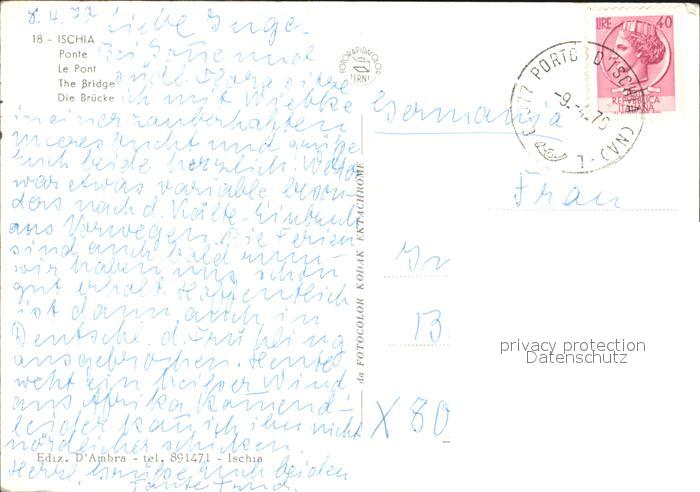 8.4.72 Liebe Inge.
18 - ISCHIA
Ponte
Le Pont
The Bridge
Die Brücke
Bei Sonne und
sitze
ich mit Wiebke
in einer zauberhaften
Meeresbucht und grüße
Euch beide herzlich. Wetter
war etwas variable beson-
ders nach d. Kälte-Einbruch
aus Norwegen. Die Ferien
sind auch bald rum -
wir haben uns schon
gut erholt. Hoffentlich
ist dann auch in
Deutschl. d. Frühling
ausgebrochen. Heute
weht ein heißer Wind
aus Afrika kommend -
leider kann ich ihn nicht
nördlicher schicken.
Ediz. D'Ambra - tel. 891471 - Ischia
Herzl. Grüße Euch beiden
Tante
FOTORAPIDACOLOR
TERNI
da FOTOCOLOR KODAK EKTACHROME
LIRE 40
REPUBBLICA
ITALIANA
PORTO D'ISCHIA (NA)
Germania
Frau
B
X 80
privacy protection
Datenschutz